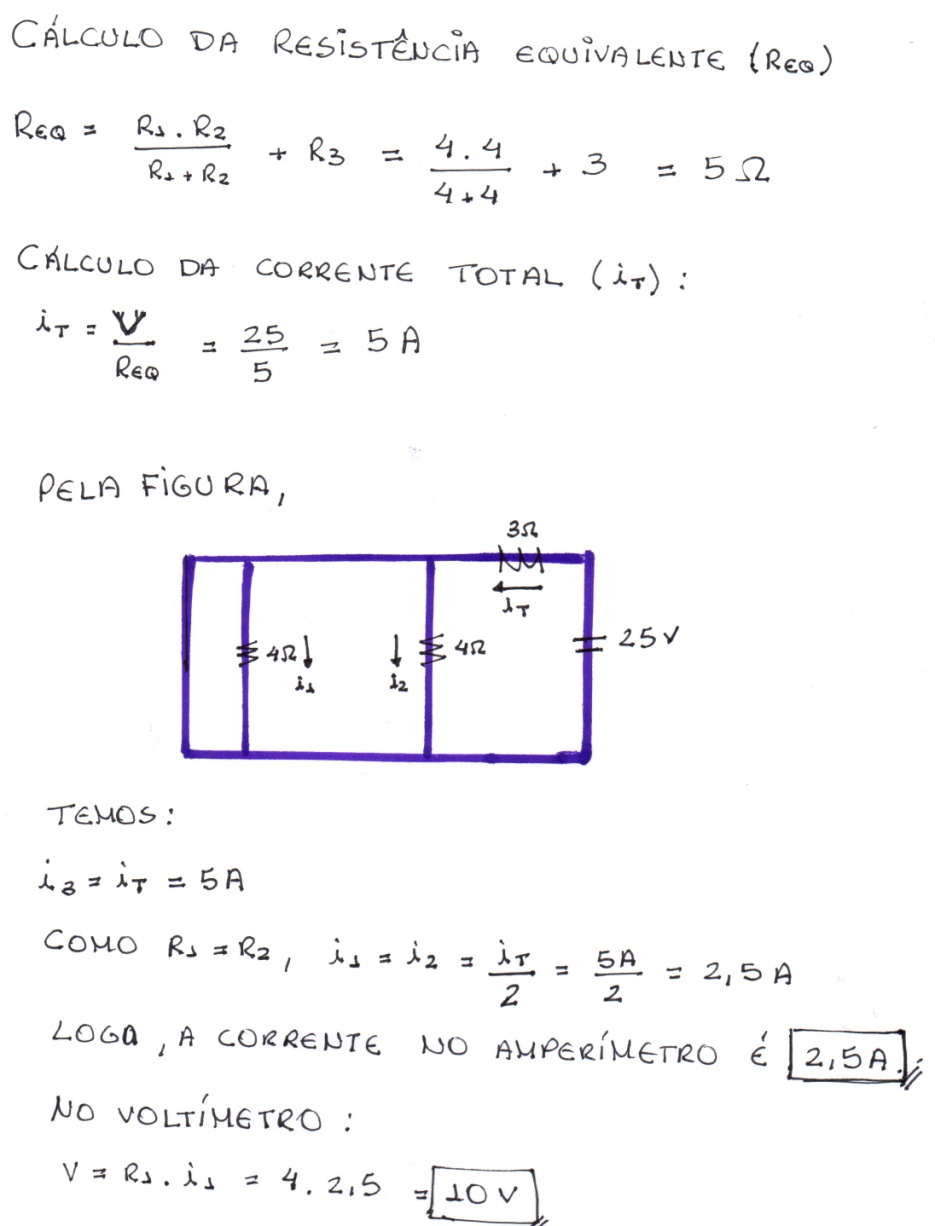 CÁLCULO DA RESISTÊNCIA EQUIVALENTE (REQ)
REQ = R1 . R2 / R1 + R2 + R3 = 4 . 4 / 4 + 4 + 3 = 5 Ω
CÁLCULO DA CORRENTE TOTAL (iT) :
iT = V / REQ = 25 / 5 = 5 A
PELA FIGURA,
3Ω
iT
4Ω
i1
i2
4Ω
25 V
TEMOS :
i3 = iT = 5A
COMO R1 = R2, i1 = i2 = iT / 2 = 5A / 2 = 2,5 A
LOGO, A CORRENTE NO AMPERÍMETRO É 2,5A.
NO VOLTÍMETRO :
V = R1 . i1 = 4 . 2,5 = 10 V